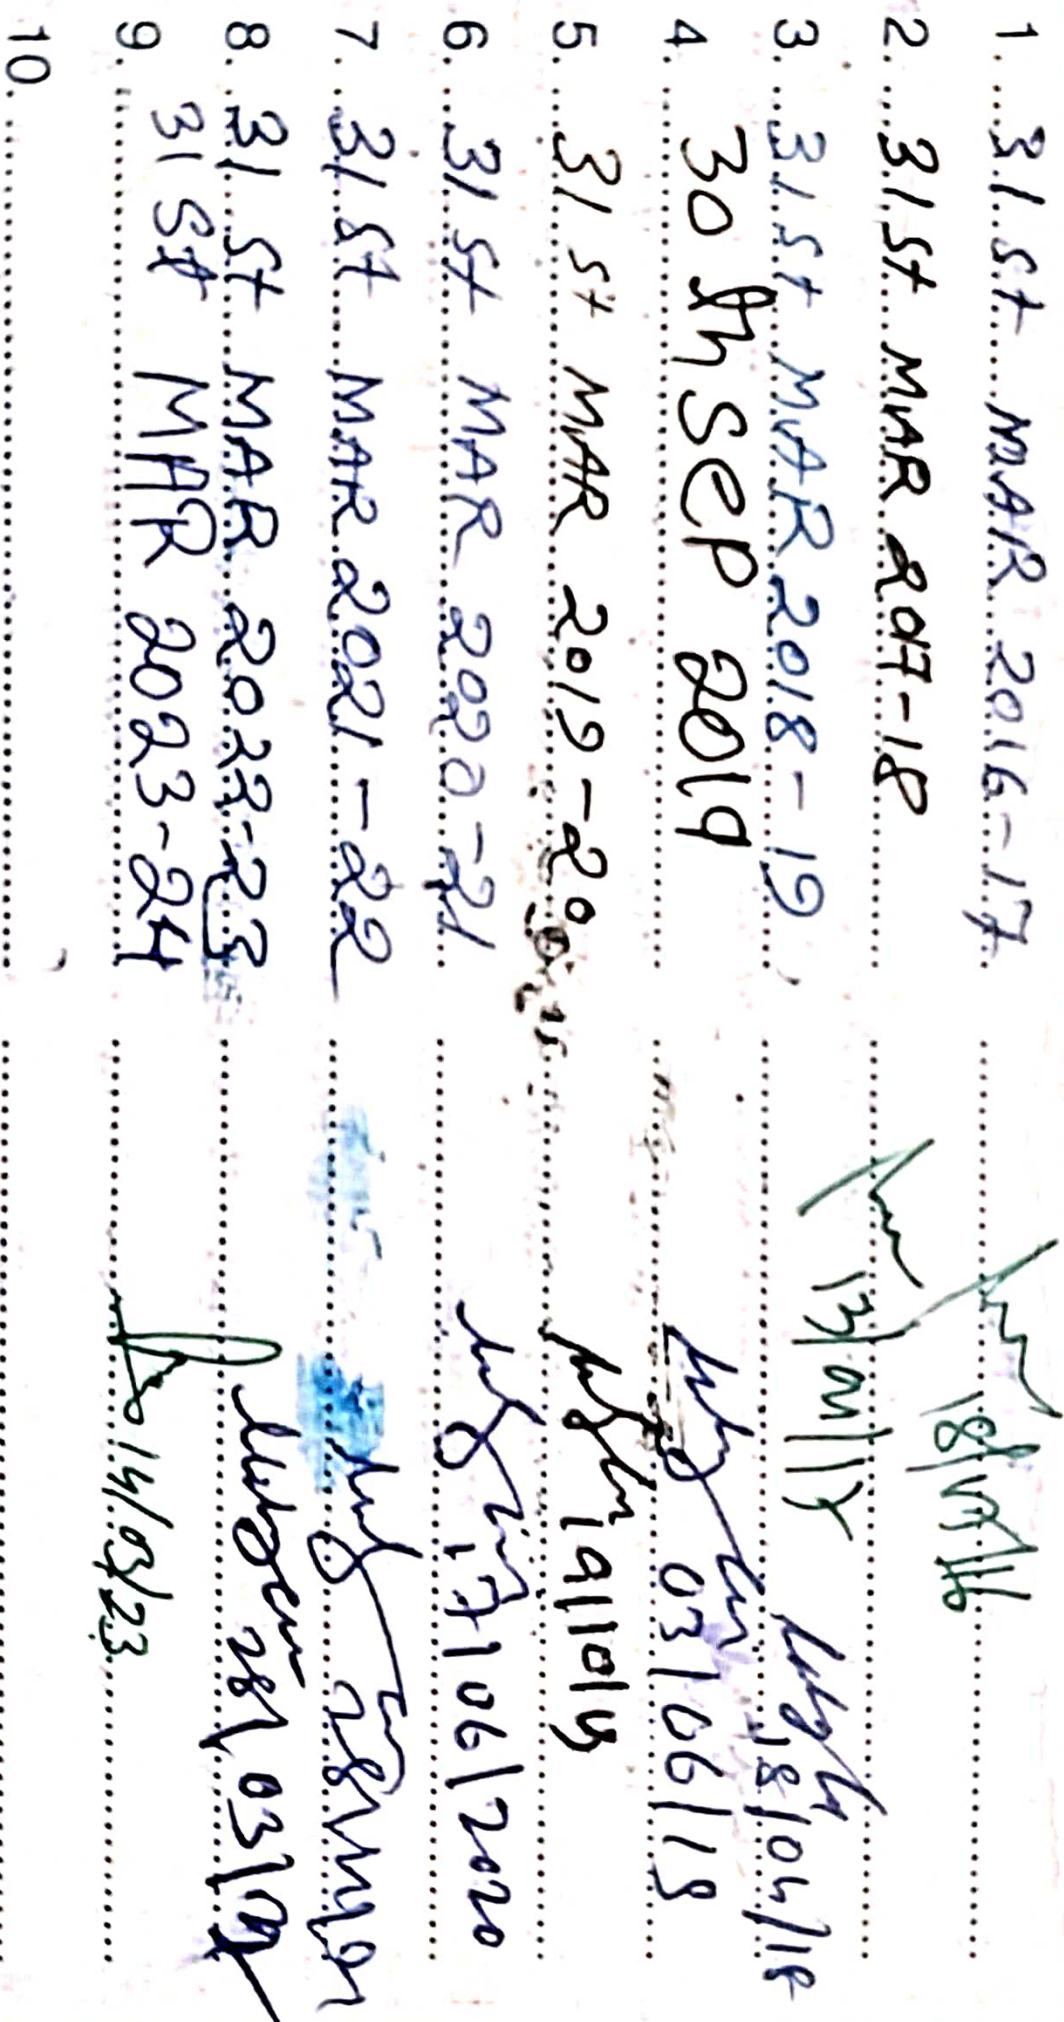 1. 31st MAR 2016-17
2. 31st MAR 2017-18 13/04/17
3. 31st MAR 2018-19 18/04/18
4. 30th SEP 2019 03/06/19
5. 31st MAR 2019-20
6. 31st MAR 2020-21 17/06/2020
7. 31st MAR 2021-22
8. 31st MAR 2022-23 28/03/
9. 31st MAR 2023-24 14/03/23
10.